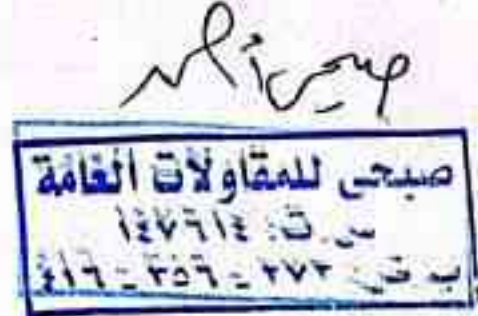 صبحى أحمد
صبحى للمقاولات العامة
س.ت: ١٤٧٦١٤
ب.ض: ٢٧٢ - ٣٥٦ - ٤١٦